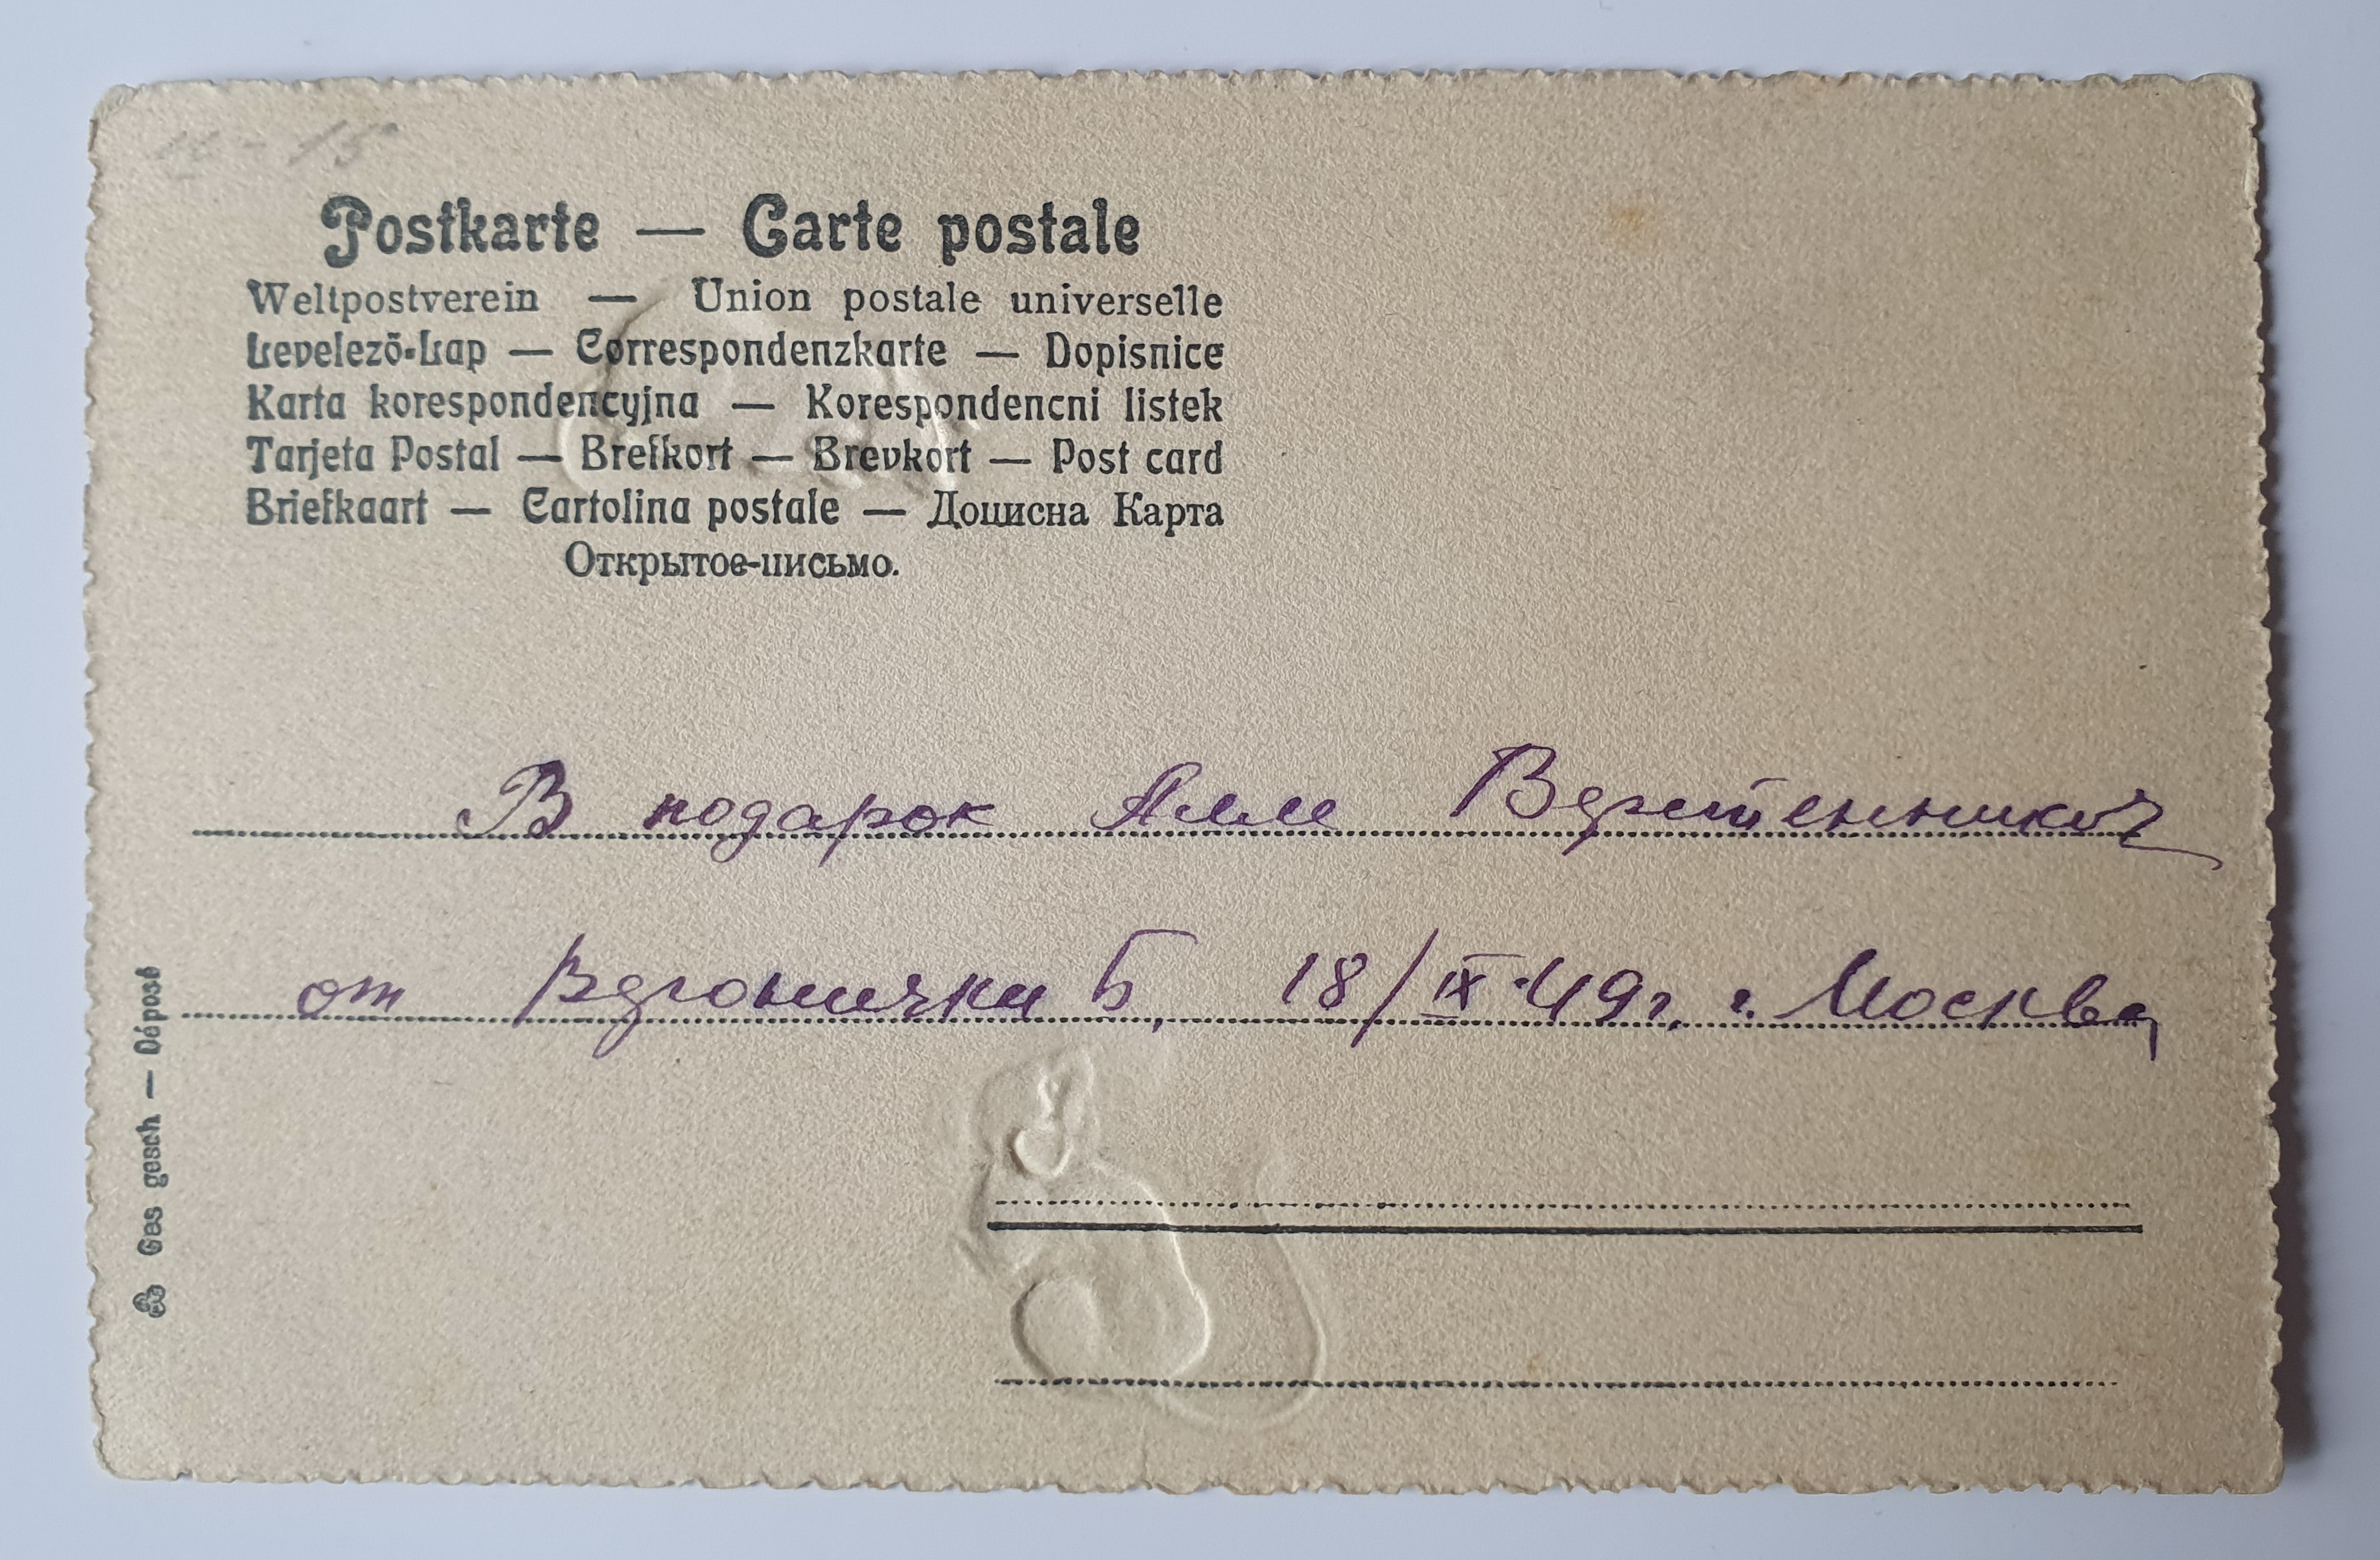 15
Postkarte — Carte postale
Weltpostverein — Union postale universelle
Levelező-Lap — Correspondenzkarte — Dopisnice
Karta korespondencyjna — Korespondencni listek
Tarjeta Postal — Brefkort — Brevkort — Post card
Briefkaart — Cartolina postale — Доцисна Карта
Открытое-письмо.
В подарок Алле
от Веронички Б, 18/IX-49г. г. Москва
Ges gesch — Déposé